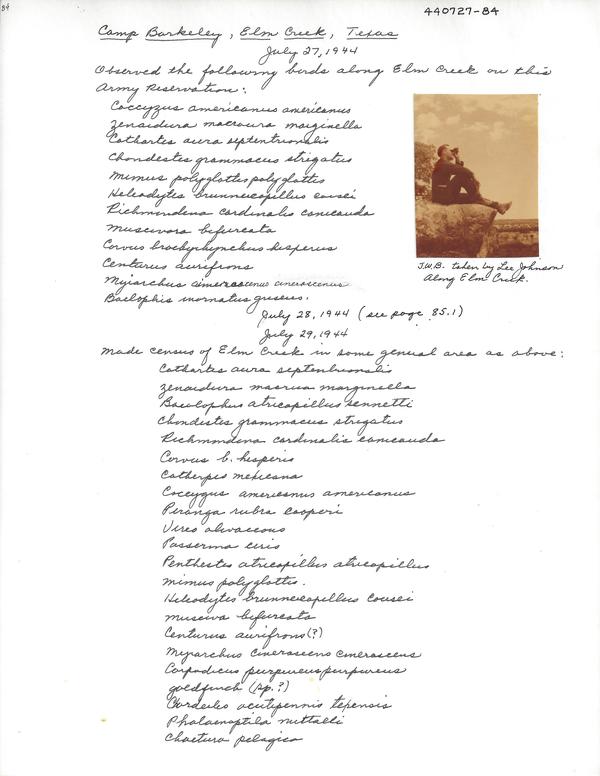 84
440727-84
Camp Barkeley, Elm Creek, Texas
July 27, 1944
Observed the following birds along Elm Creek on this
Army Reservation:
Coccyzus americanus americanus
Zenaidura macroura marginella
Cathartes aura septentrionalis
Chondestes grammacus strigatus
Mimus polyglottos polyglottos
Heleodytes brunneicapillus couesi
Richmondena cardinalis canicauda
Muscivora bifurcata
Corvus brachyrhynchus hesperus
Centurus aurifrons
Myiarchus cinerascens cinerascens
Baelophis inornatus griseus.
J.W.B. taken by Lee Johnson
Along Elm Creek.
July 28, 1944 (see page 85.1)
July 29, 1944
Made census of Elm Creek in some genual area as above:
Cathartes aura septentrionalis
Zenaidura macrua marginella
Baeolophus atricapillus sennetti
Chondestes grammacus strigatus
Richmondena cardinalis canicauda
Corvus b. hesperis
Catherpes mexicana
Coccyzus americanus americanus
Piranga rubra cooperi
Vireo olivaceous
Passerina ciris
Penthestes atricapillus atricapillus
Mimus polyglottis.
Heleodytes brunneicapillus couesi
Musciva bifurcata
Centurus aurifrons (?)
Myiarchus cinerascens cinerascens
Carpodicus purpureus purpureus
goldfinch (sp.?)
Chordeiles acutipennis texensis
Phalaenoptila nuttalli
Chaetura pelagica